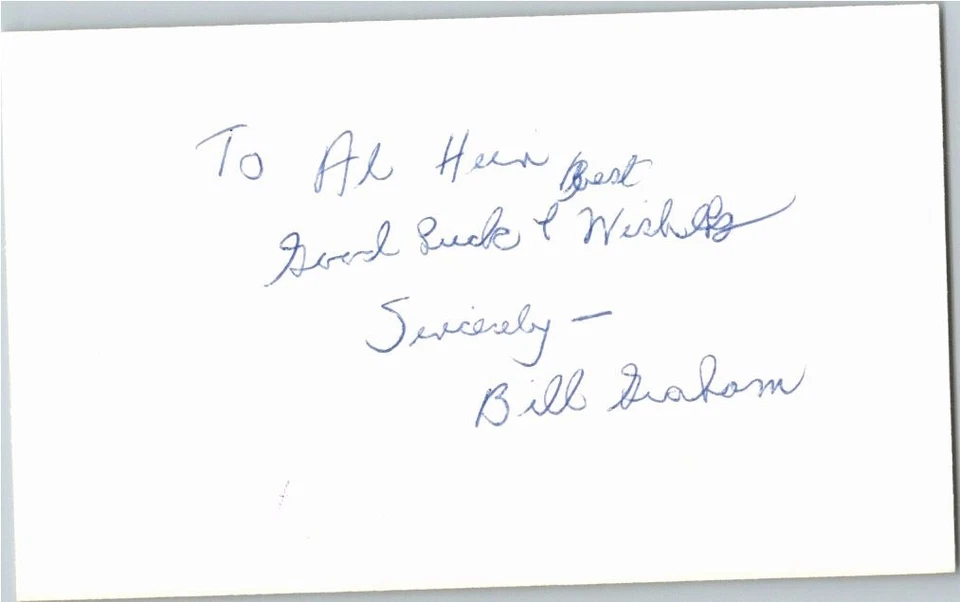 To Al Hein
Best
Good Luck & Wishes
Sincerely —
Bill Graham